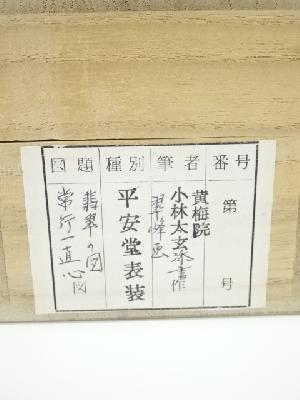 番号
第 号
筆者
黄梅院
小林太玄
翠峰画
種別
平安堂表装
図題
翡翠の図
常行一直心